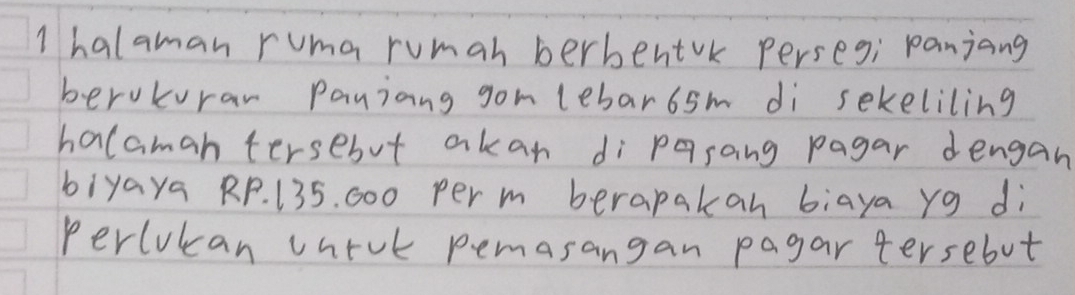 1 halaman ruma rumah berbentuk persegi panjang
berukuran panjang 90m lebar 65m di sekeliling
halaman tersebut akan di pasang pagar dengan
biyaya RP.135.000 per m berapakah biaya yg di
perlukan untuk pemasangan pagar tersebut